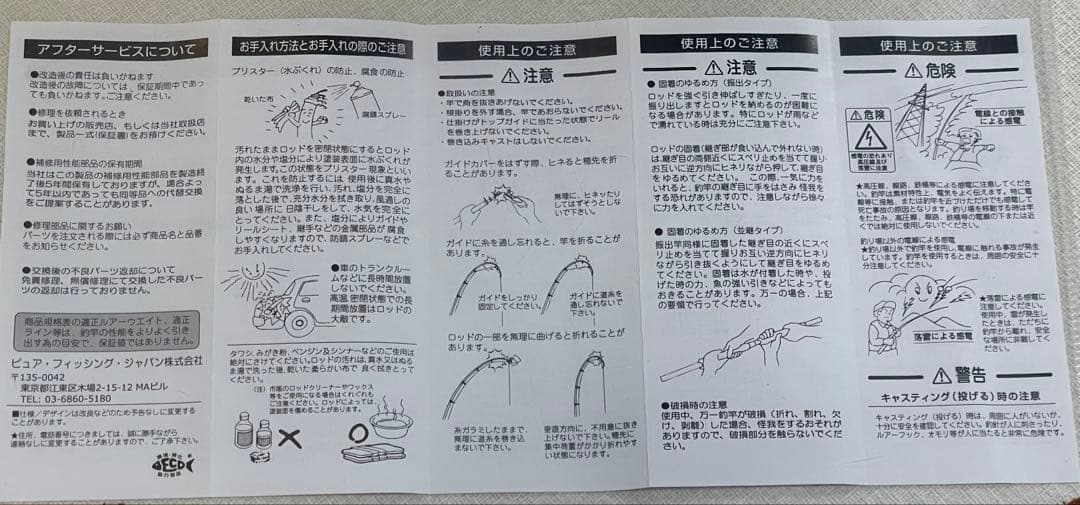 アフターサービスについて
●改造後の責任は負いかねます
改造後の故障については、保証期間中であっ
ても負いかねます。ご注意ください。
●修理を依頼されるとき
お買い上げの販売店、もしくは当社取扱店
まで、製品一式(保証書)をお預けください。
●補修用性能部品の保有期間
当社はこの製品の補修用性能部品を製造終
了後5年間保有しておりますが、場合よっ
て5年以内であっても同等品への代替交換
をご提案することがあります。
●修理部品に関するお願い
パーツを注文される際には必ず商品名と品番
をお知らせください。
●交換後の不良パーツ返却について
免責修理、無償修理にて交換した不良パー
ツの返却は行っておりません。
商品規格表の適正ルアーウエイト、適正
ライン等は、釣竿の性能をよりよく引き
出す為の目安で、保証値ではありません。
ピュア・フィッシング・ジャパン株式会社
〒135-0042
東京都江東区木場2-15-12 MAビル
TEL: 03-6860-5180
■仕様/デザインは改良などのため予告なしに変更する
ことがあります。
★住所、電話番号につきましては、誠に勝手ながら
連絡なしに変更することがありますので、ご了承下さい。
ECO
お手入れ方法とお手入れの際のご注意
ブリスター(水ぶくれ)の防止、腐食の防止
乾いた布
防錆スプレー
汚れたままロッドを密閉状態にするとロッド
内の水分や塩分により塗装表面に水ぶくれが
発生します。この状態をブリスター現象といい
ます。これを防止するには、使用後に真水や
ぬるま湯で洗浄を行い、汚れ、塩分を完全に
落とした後で、充分水分を拭き取り、風通しの
良い場所に日陰干しをして、水気を完全に
とってください。また、塩分によりガイドや
リールシート、継手などの金属部品が腐食
しやすくなりますので、防錆スプレーなどで
お手入れしてください。
●車のトランクルー
ムなどに長時間放置
しないでください。
高温、密閉状態での長
期間放置はロッドの
大敵です。
タワシ、みがき粉、ベンジン&シンナーなどのご使用は
絶対にさけてください。ロッドの汚れは、真水又はぬる
ま湯で洗った後、乾いた柔らかい布で良く拭きとって
ください。
(注) 市販のロッドクリーナーやワックス
等をご使用になる場合はくれぐれも
ご注意ください。ロッドによっては、
塗装面を傷めることがあります。
使用上のご注意
⚠注意
●取扱いの注意
・竿で魚を抜きあげないでください。
・根掛りを外す場合、竿であおらないでください。
・仕掛けがトップガイドに当たった状態でリール
を巻き上げないでください。
・巻き込みキャストはしないでください。
ガイドカバーをはずす際、ヒネると穂先を折
ることがあります。
無理に、ヒネッたり
してはずそうとしな
いで下さい。
ガイドに糸を通し忘れると、竿を折ることが
あります。
ガイドをしっかり
固定してください。
ガイドに道糸を
通し忘れないで
下さい。
ロッドの一部を無理に曲げると折れることが
あります。
糸ガラミしたままで、
無理に道糸を巻き込
まないで下さい。
垂直方向に、不用意に抜き
上げないで下さい。穂先に
集中荷重がかかり折れやす
い状態になります。
使用上のご注意
⚠注意
● 固着のゆるめ方(振出タイプ)
ロッドを強く引き伸ばしすぎたり、一度に
振り出しますとロッドを納めるのが困難に
なる場合があります。特にロッドが雨など
で濡れている時は充分にご注意下さい。
ロッドの固着(継ぎ部が食い込んで外れない時)
は、継ぎ目の両側近くにスベリ止めを当てて握り、
お互いに逆方向にヒネりながら押して継ぎ目
をゆるめてください。この際、一気に力を
いれると、釣竿の継ぎ目に手をはさみ 怪我を
する恐れがありますので、注意しながら徐々
に力を入れてください。
● 固着のゆるめ方(並継タイプ)
振出竿同様に固着した継ぎ目の近くにスベ
リ止めを当てて握りお互い逆方向にヒネリ
ながら引き抜くようにして継ぎ目をゆるめ
てください。固着は水が付着した時や、投
げた時の力、魚の強い引きなどによっても
おきることがあります。万一の場合、上記
の要領で行ってください。
● 破損時の注意
使用中、万一釣竿が破損(折れ、割れ、欠
け、剥離)した場合、怪我をするおそれが
ありますので、破損部分を触らないでくだ
さい。
使用上のご注意
⚠危険
電線との接触
による感電
⚠危険
感電の恐れあり
★高圧線、線路、鉄橋等による感電に注意してください。
釣り場以外の電線による感電
★釣り場以外で釣竿を使用し、電線に触れる事故が発生
しています。釣竿を使用するときは、周囲の安全に十
分注意してください。
落雷による感電
★落雷による感電に
注意してください。
使用中、雷が発生し
たときは、ただちに
釣竿から離れ、安全
な場所に非難してく
ださい。
⚠警告
キャスティング(投げる)時の注意
キャスティング(投げる)時は、周囲に人がいないか、
十分に安全を確認してください。釣針が人に刺さったり、
ルアーフック、オモリ等が人に当たると非常に危険です。